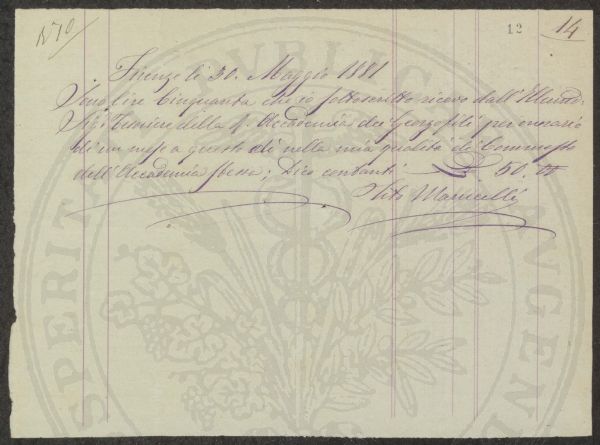 N° 70
12
14
Firenze li 30. Maggio 1881
Sono lire Cinquanta che io sottoscritto ricevo dall'Illmo
Sigr Cassiere della R. Accademia dei Georgofili per onorario
di un mese a questo dì nella mia qualità di Commesso
dell'Accademia stessa; Dico contanti £ 50.00
Vito
PUBLIC
PROSPERITATI AUGENDAE